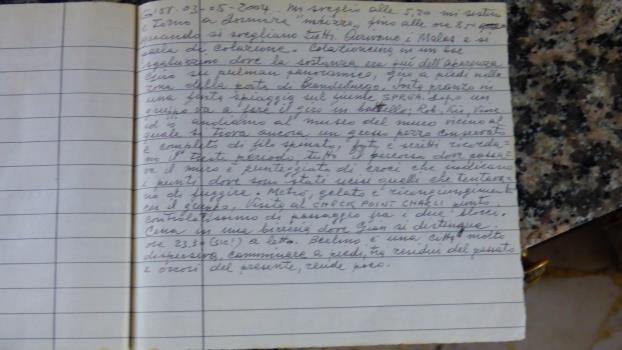 03-05-2004. Mi sveglio alle 5,20 mi
e torno a dormire fino alle 8,
quando si svegliano tutti. Scrivono i Malos e si
parla di colazione. Colazioncina in un bar
sgaburzino dove la sostanza era più dell'apparenza
Giro su pullman panoramico, giro a piedi nella
zona della porta di Brandeburgo. Pranzo in
una finta spiaggia sul fiume SPREA. Dopo un
gruppo va a fare il giro in battello,
andiamo al museo del muro vicino al
quale si trova ancora un grosso pezzo conservato
e completo di filo spinato, foto e scritti ricorda-
no il triste periodo, tutto il percorso dove passa-
va il muro è punteggiato di croci che indicano
i punti dove sono stati uccisi quelli che tentava-
no di fuggire. Metrò, gelato e ricongiungimento
con il gruppo. Visita al CHECK POINT CHARLI punto
controllatissimo di passaggio fra i due blocchi.
Cena in una birreria dove Gian si distingue,
ore 23,30 (sic!) a letto. Berlino è una città molto
dispersiva, camminare a piedi, tra residui del passato
e orrori del presente, rende poco.